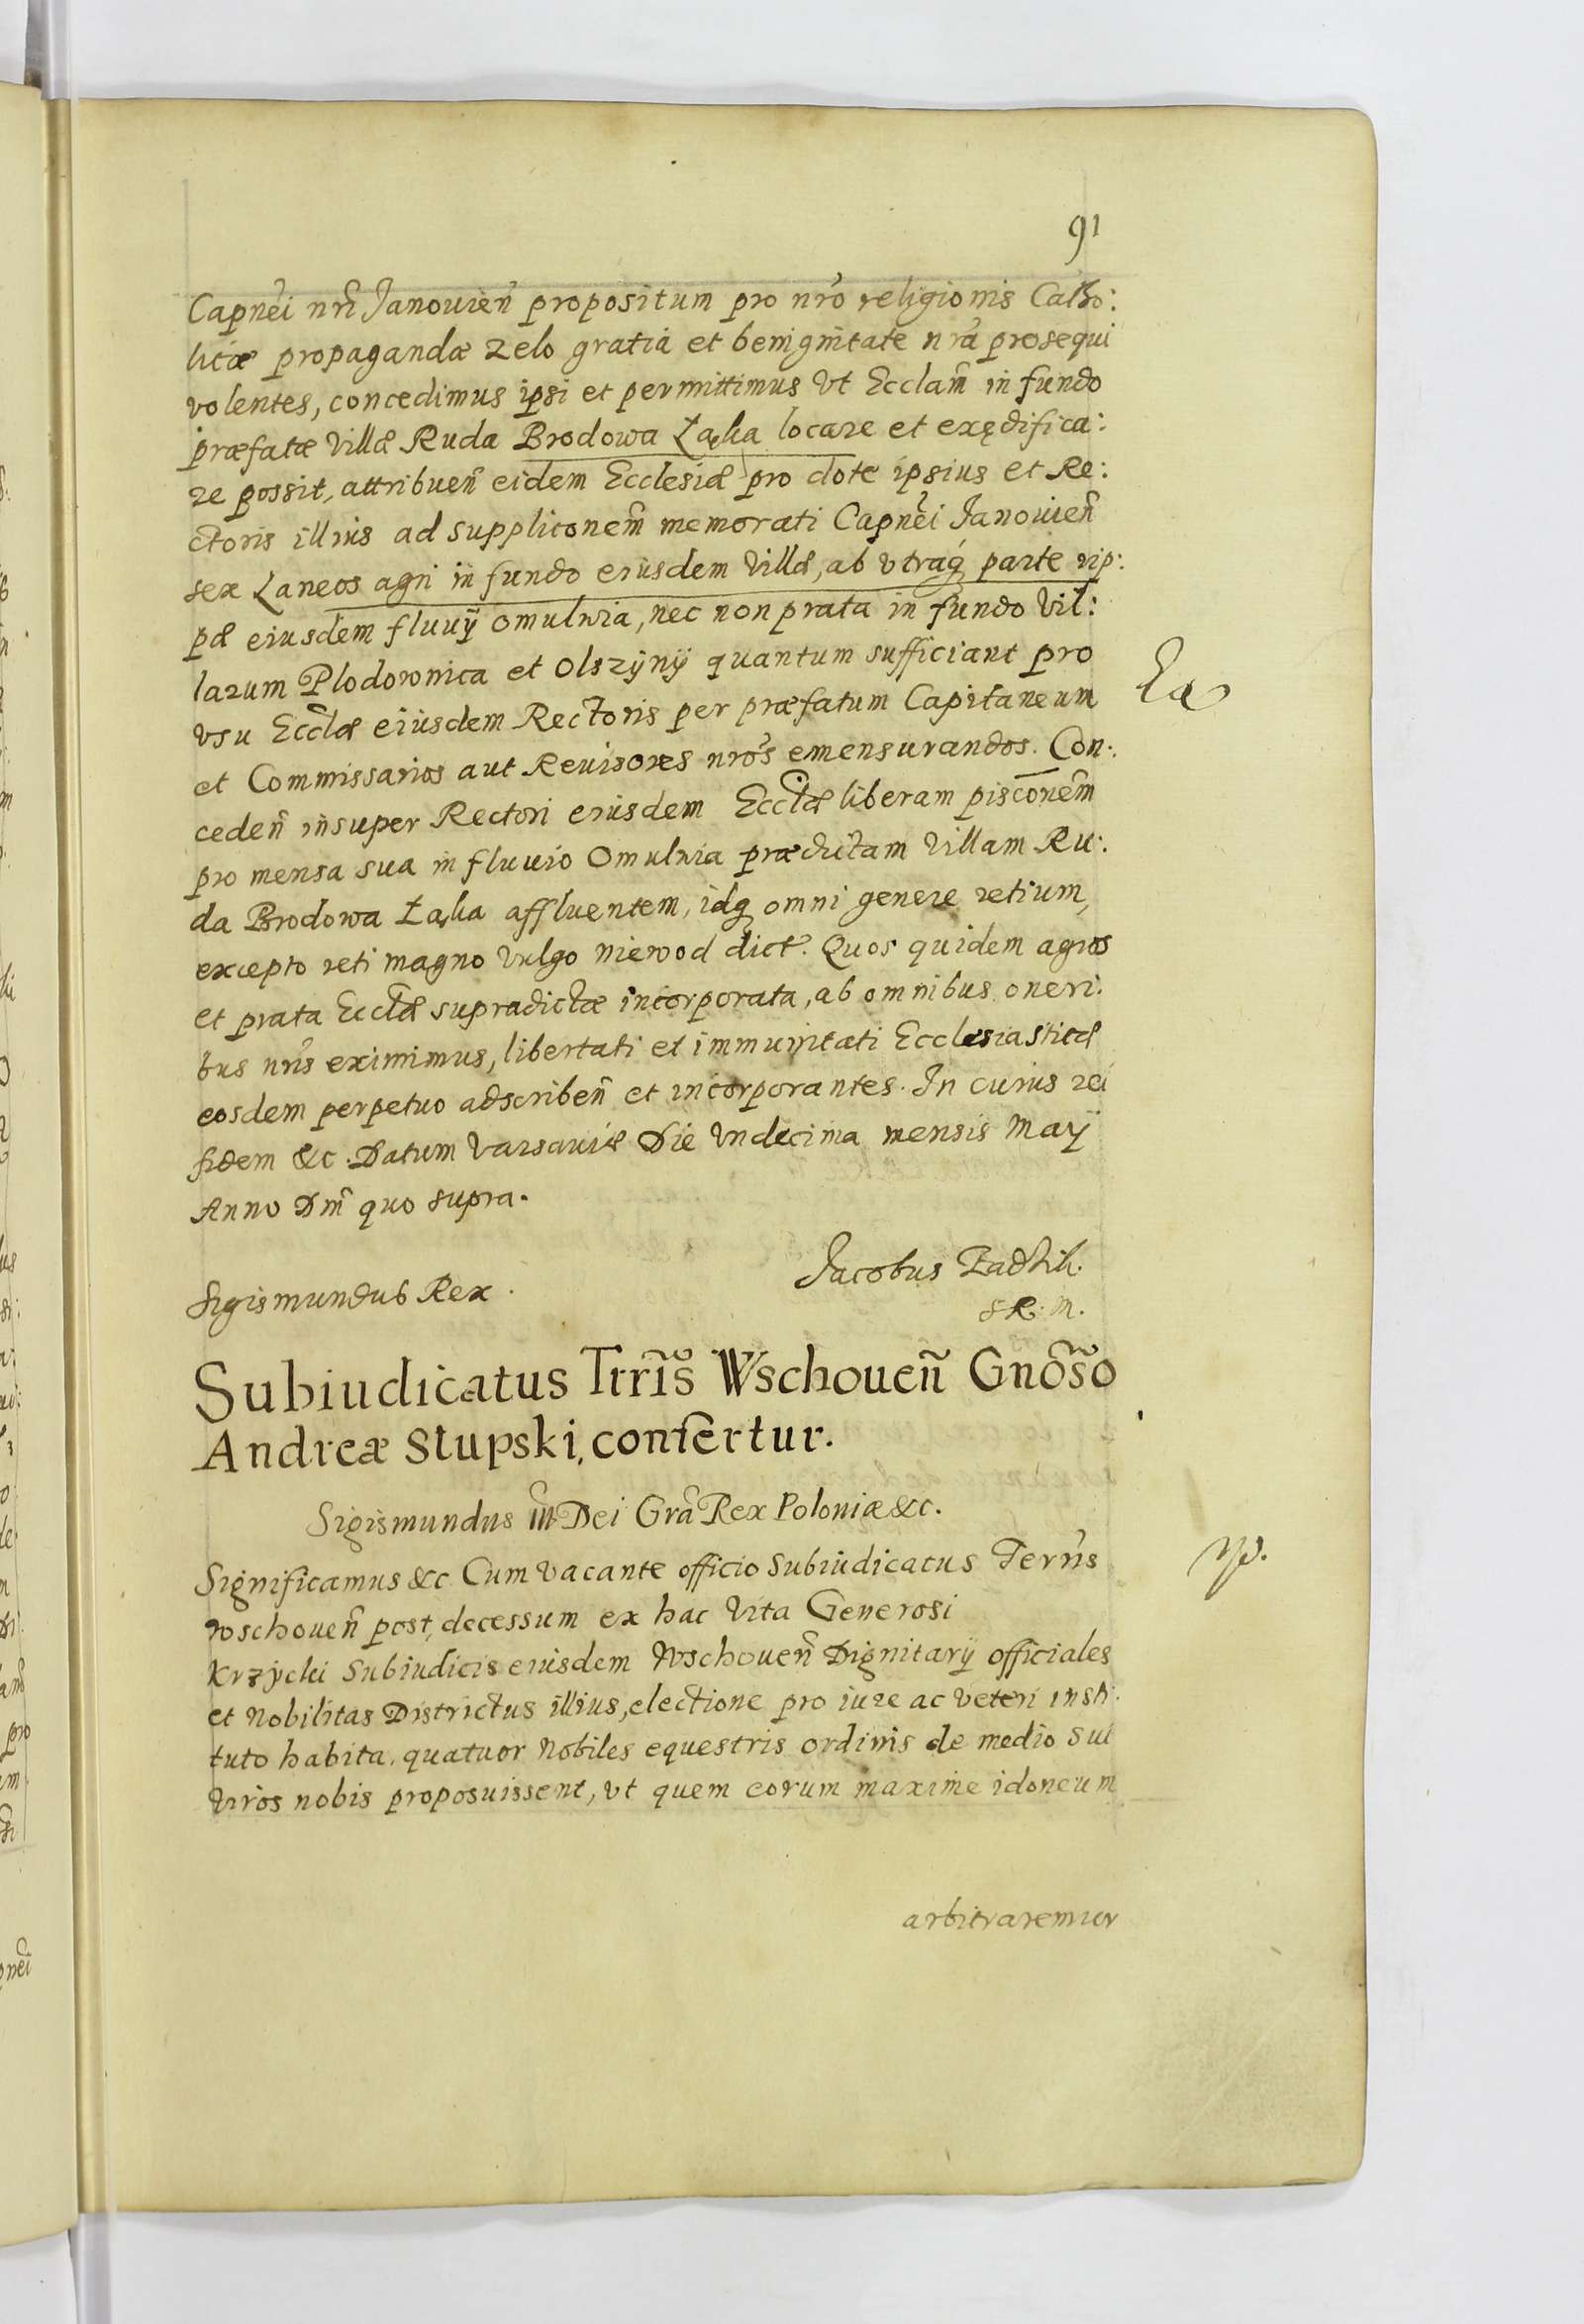 91
Capnei nri Janouien propositum pro nro religionis Catho:
licæ propagandæ zelo gratia et benignitate nra prosequi
volentes, concedimus ipsi et permittimus vt Ecclam in fundo
præfatæ villæ Ruda Brodowa Łąka locare et exędifica:
re possit, attribuen eidem Ecclesiæ pro dote ipsius et Re:
ctoris illius ad suppliconem memorati Capnei Janouien
sex Laneos agri in fundo eiusdem villæ, ab vtraq parte rip:
pæ eiusdem fluuÿ Omulwia, nec non prata in fundo vil:
larum Plodownica et Olszÿnÿ quantum sufficiant pro
vsu Ecclæ eiusdem Rectoris per præfatum Capitaneum
et Commissarios aut Reuisores nros emensurandos. Con:
ceden insuper Rectori eiusdem Ecclæ liberam pisconem
pro mensa sua in fluuio Omulwia prædictam villam Ru:
da Brodowa Łąka affluentem, idq omni genere retium,
excepto reti magno vulgo niewod dict. Quos quidem agros
et prata Ecclæ supradictæ incorporata, ab omnibus oneri:
bus nris eximimus, libertati et immunitati Ecclesiasticæ
eosdem perpetuo adscriben et incorporantes. In cuius rei
fidem &c. Datum Varsauiæ Die Vndecima mensis Maÿ
Anno Dni quo supra.
Sigismundus Rex.
Jacobus Zadzik.
S R. M.
Subiudicatus Trris Wschouen Gnoso
Andreæ Slupski, confertur.
Sigismundus III Dei Gra Rex Poloniæ &c.
Significamus &c Cum vacante officio Subiudicatus Terris
Wschouen post decessum ex hac vita Generosi
Krzÿcki Subiudicis eiusdem Wschouen Dignitarÿ officiales
et Nobilitas Districtus illius, electione pro iure ac veteri insti:
tuto habita, quatuor Nobiles equestris ordinis de medio sui
viros nobis proposuissent, vt quem eorum maxime idoneum
arbitraremur